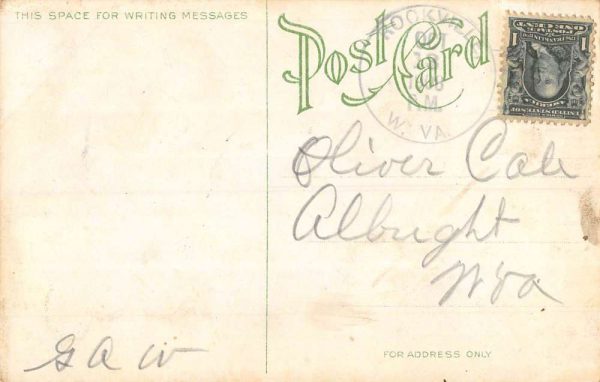 THIS SPACE FOR WRITING MESSAGES
Post Card
ROCKVILLE
W. VA.
M.
POSTAGE
ONE CENT
1 1
UNITED STATES OF
AMERICA
Oliver Cale
Albright
Wva
G A W
FOR ADDRESS ONLY